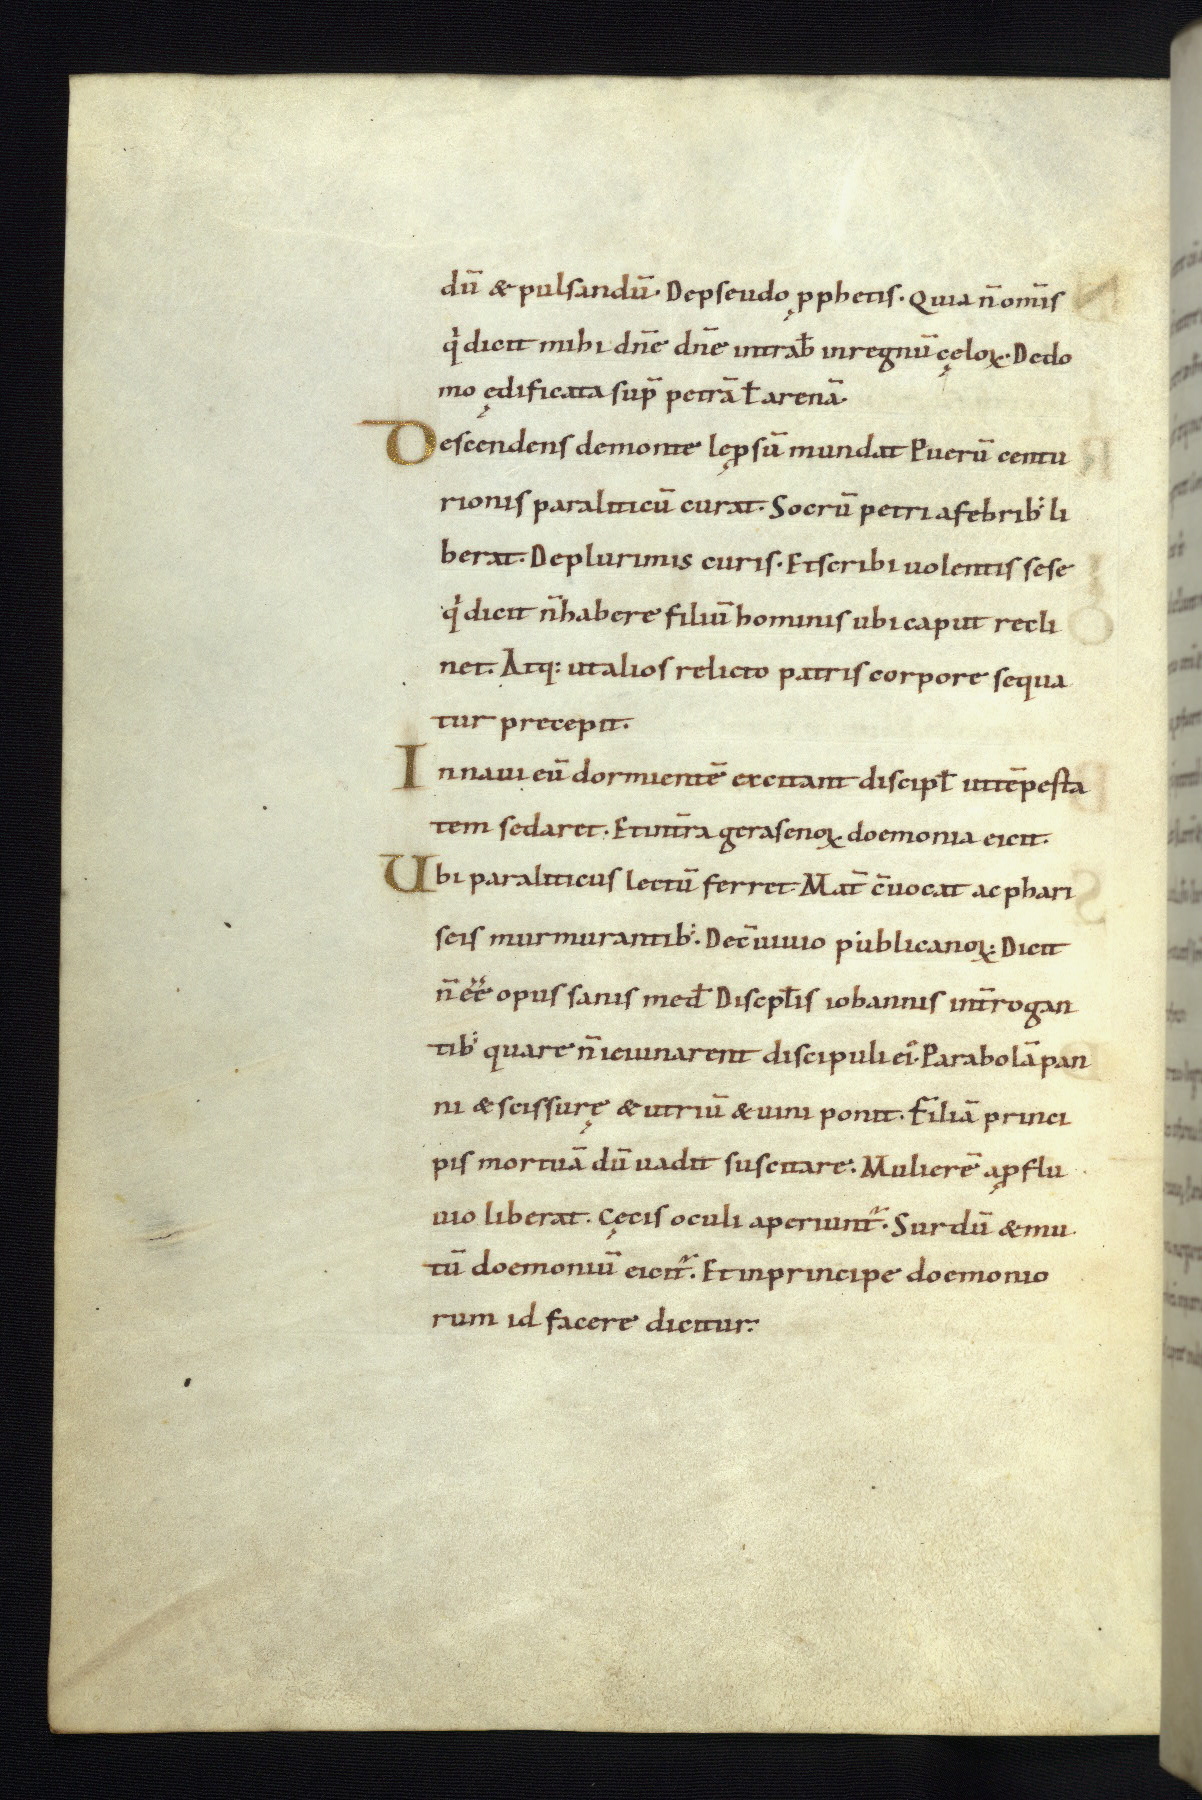 dū & pulsandū. De pseudo ꝓphetis. Quia n̄ om̄s
q̇ dicit mihi dn̄e dn̄e intrab̄ in regnū cęloꝝ. De do
mo ędificata sup̄ petrā ł arenā.
Descendens de monte lep̱sū mundat Puerū centu
rionis paraliticū curat. Socrū petri a febrib; li
berat. De plurimis curis. Et scribi uolentis sese
q̇ dicit n̄ habere filiū hominis ubi caput recli
net. Atq: ut alios relicto patris corpore sequa
tur precepit.
In naui eū dormientē excitant discipł ut tēpesta
tem sedaret. Et int̄ra gerasenoꝝ doemonia eicit.
Ubi paraliticus lectū ferret. Mat̄ c̄uocat ac phari
seis murmurantib;. De c̄uiuio publicanoꝝ: Dicit
n̄ ēē opus sanis med̄ Discipłis iohannis int̄rogan
tib; quare n̄ ieiunarent discipuli ei᾿. Parabolā pan
ni & scissurę & utriū & uini ponit. Filiā princi
pis mortuā dū uadit suscitare. Mulierē a ꝓflu
uio liberat. Cęcis oculi aperiunt᷑. Surdū & mu
tū doemoniū eicit᷑. Et in principe doemonio
rum id facere dicitur: